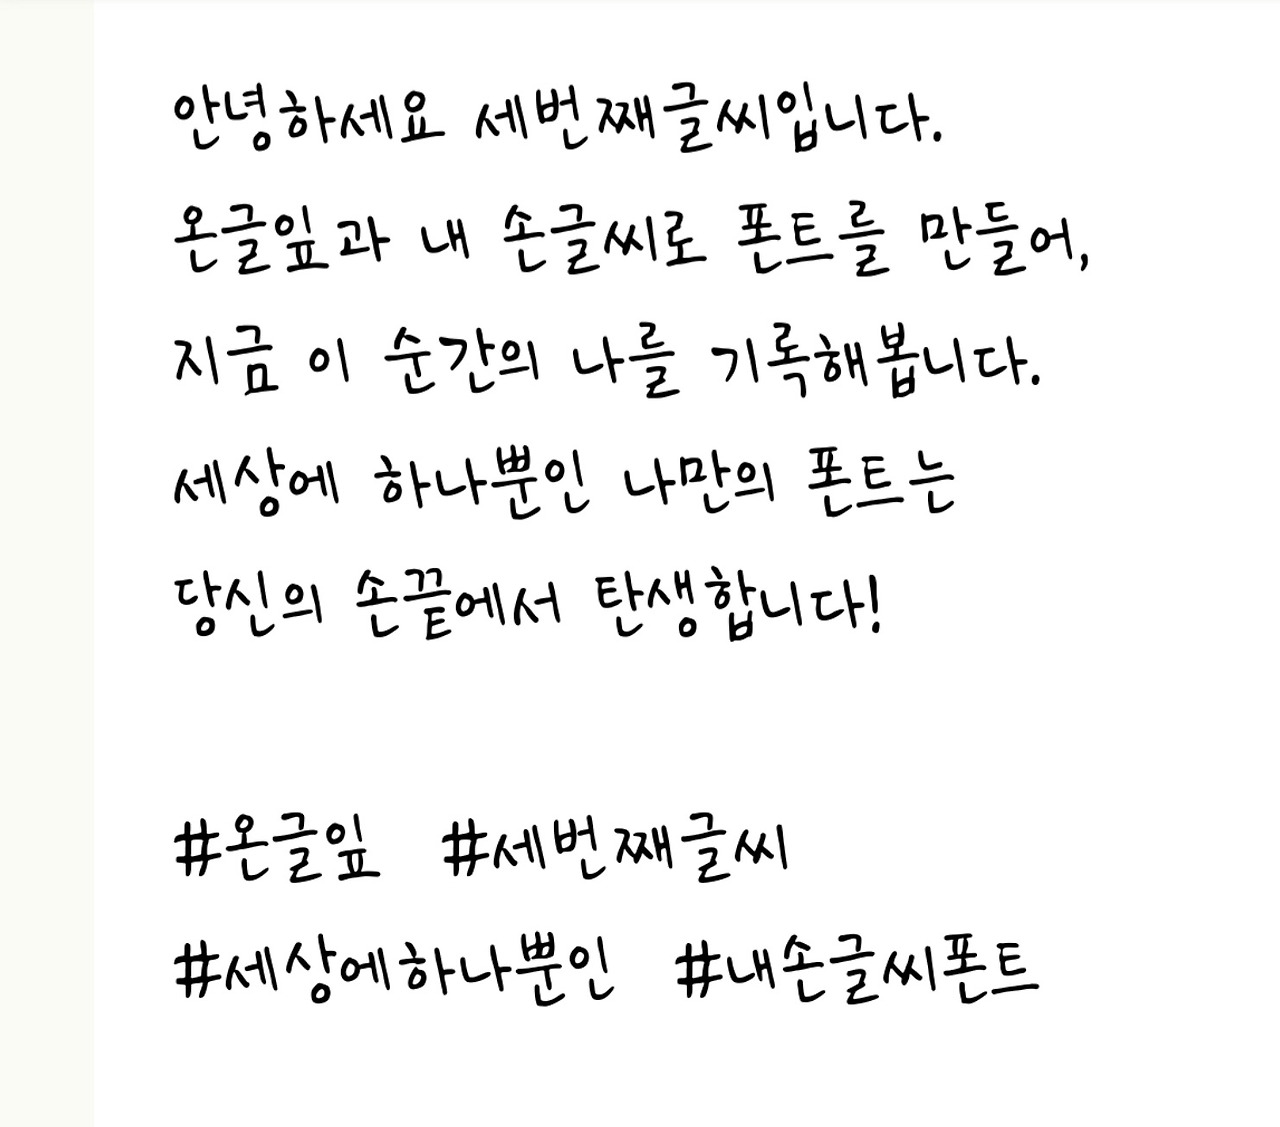 안녕하세요 세번째글씨입니다.
온글잎과 내 손글씨로 폰트를 만들어,
지금 이 순간의 나를 기록해봅니다.
세상에 하나뿐인 나만의 폰트는
당신의 손끝에서 탄생합니다!
#온글잎 #세번째글씨
#세상에하나뿐인 #내손글씨폰트